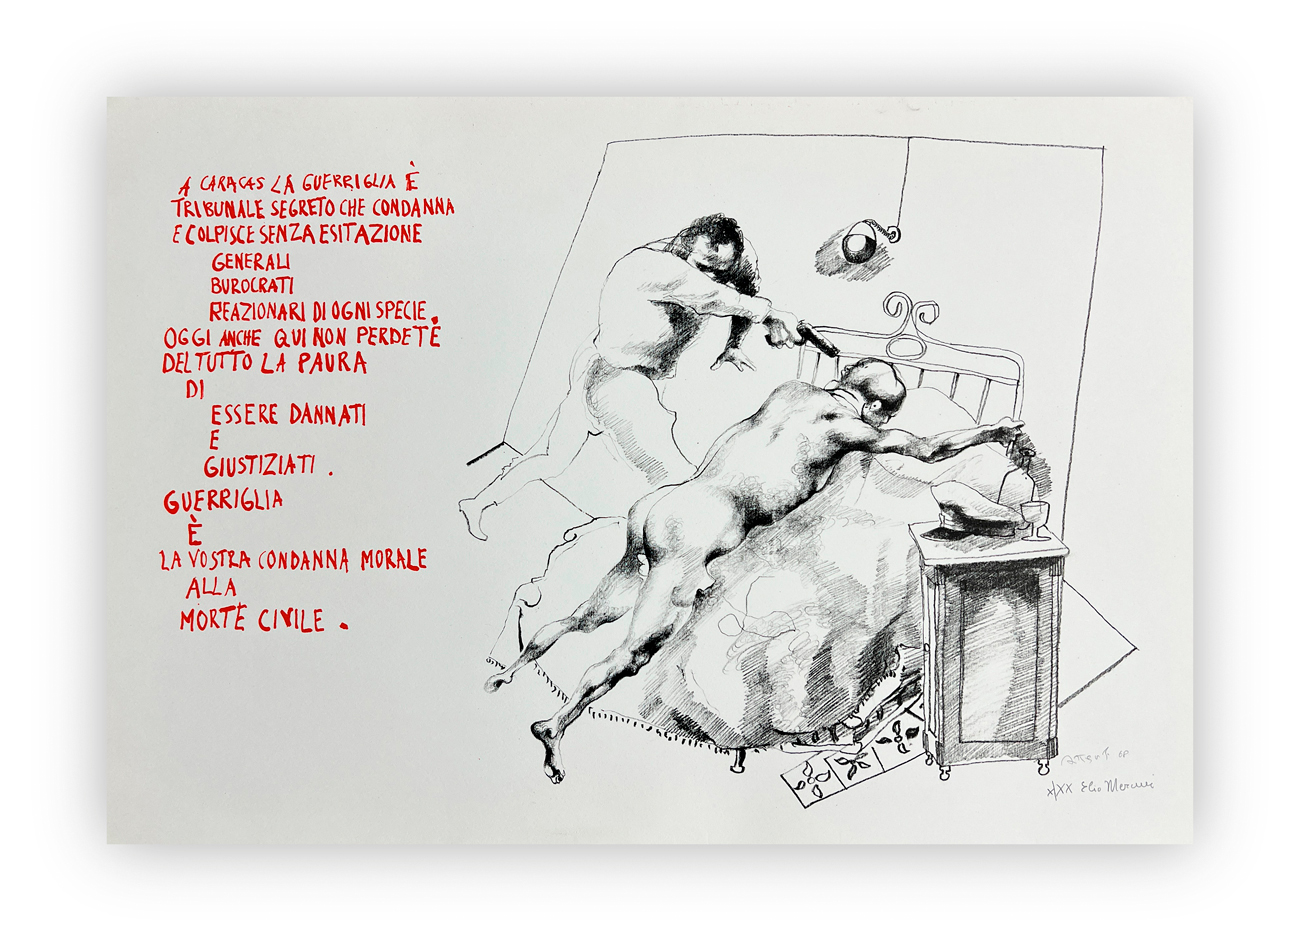 A CARACAS LA GUERRIGLIA È
TRIBUNALE SEGRETO CHE CONDANNA
E COLPISCE SENZA ESITAZIONE
GENERALI
BUROCRATI
REAZIONARI DI OGNI SPECIE.
OGGI ANCHE QUI NON PERDETE
DEL TUTTO LA PAURA
DI
ESSERE DANNATI
E
GIUSTIZIATI.
GUERRIGLIA
È
LA VOSTRA CONDANNA MORALE
ALLA
MORTE CIVILE.
X/XX Elio